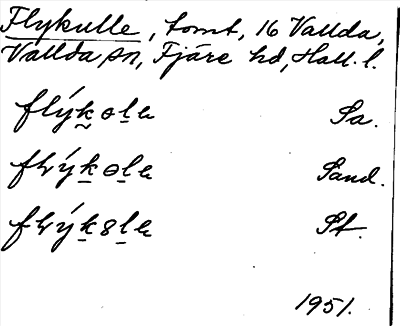 Flykulle, tomt, 16 Vallda,
Vallda sn, Fjäre hd, Hall. l.
flýkələ Sa.
fɫýkələ Sand.
fɫýk8lə St.
1951.